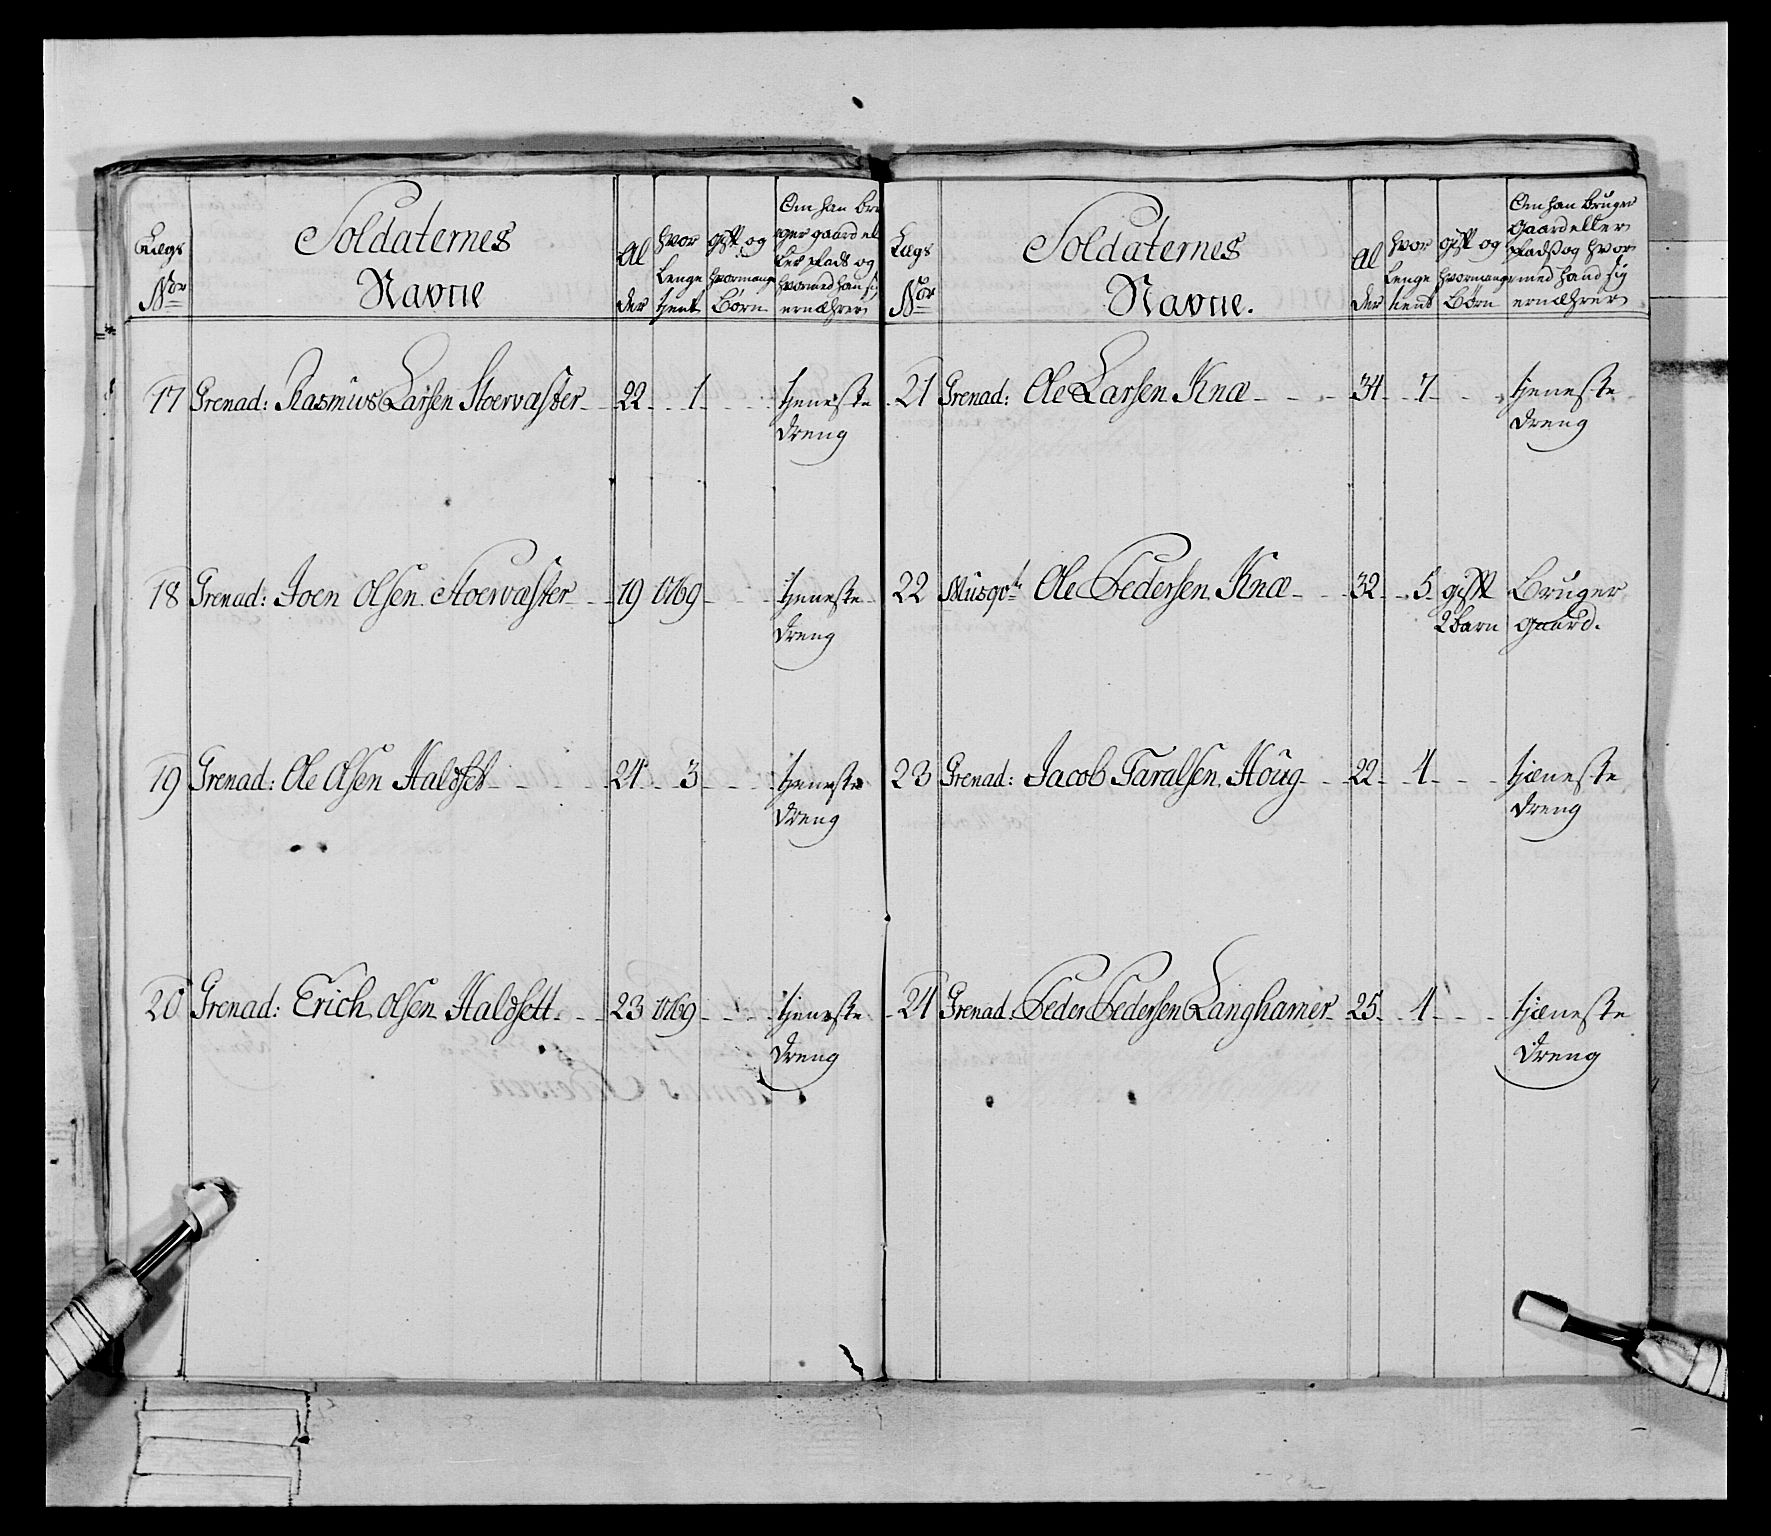 Lægs
No
Soldaternes
Navne
Al
der
hvor
lenge
tjent
gift og
hvormange
Børn
Om han bru
ger gaard el
ler plads og
hvormed han sig
ernæhrer
17 Grenad: Rasmus Larsen Stoervæster 22 1 tjeneste
dreng
18 Grenad: Joen Olsen Stoervæster 19 1769 tjeneste
dreng
19 Grenad: Ole Olsen Haldset 24 3 tjeneste
dreng
20 Grenad: Erich Olsen Haldsett 23 1769 tjeneste
dreng
Lægs
No
Soldaternes
Navne.
Al
der
hvor
lenge
tient
gift og
hvormange
Børn
Om han bruger
Gaard eller
Plads og hvor
med hand sig
ernæhrer
21 Grenad: Ole Larsen Knæ 34 7 tjeneste
dreng
22 Musqvt: Ole Pedersen Knæ 32 5 gift Bruger
2 barn gaard.
23 Grenad: Jacob Taralsen Houg 22 4 tjæneste
dreng
24 Grenad: Peder Pedersen Langhamer 25 4 tjæneste
dreng